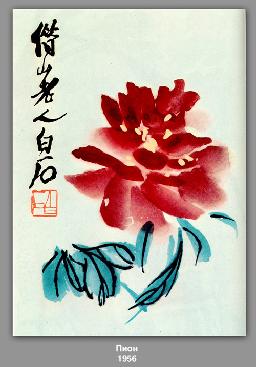 借山老人白石
Пион
1956